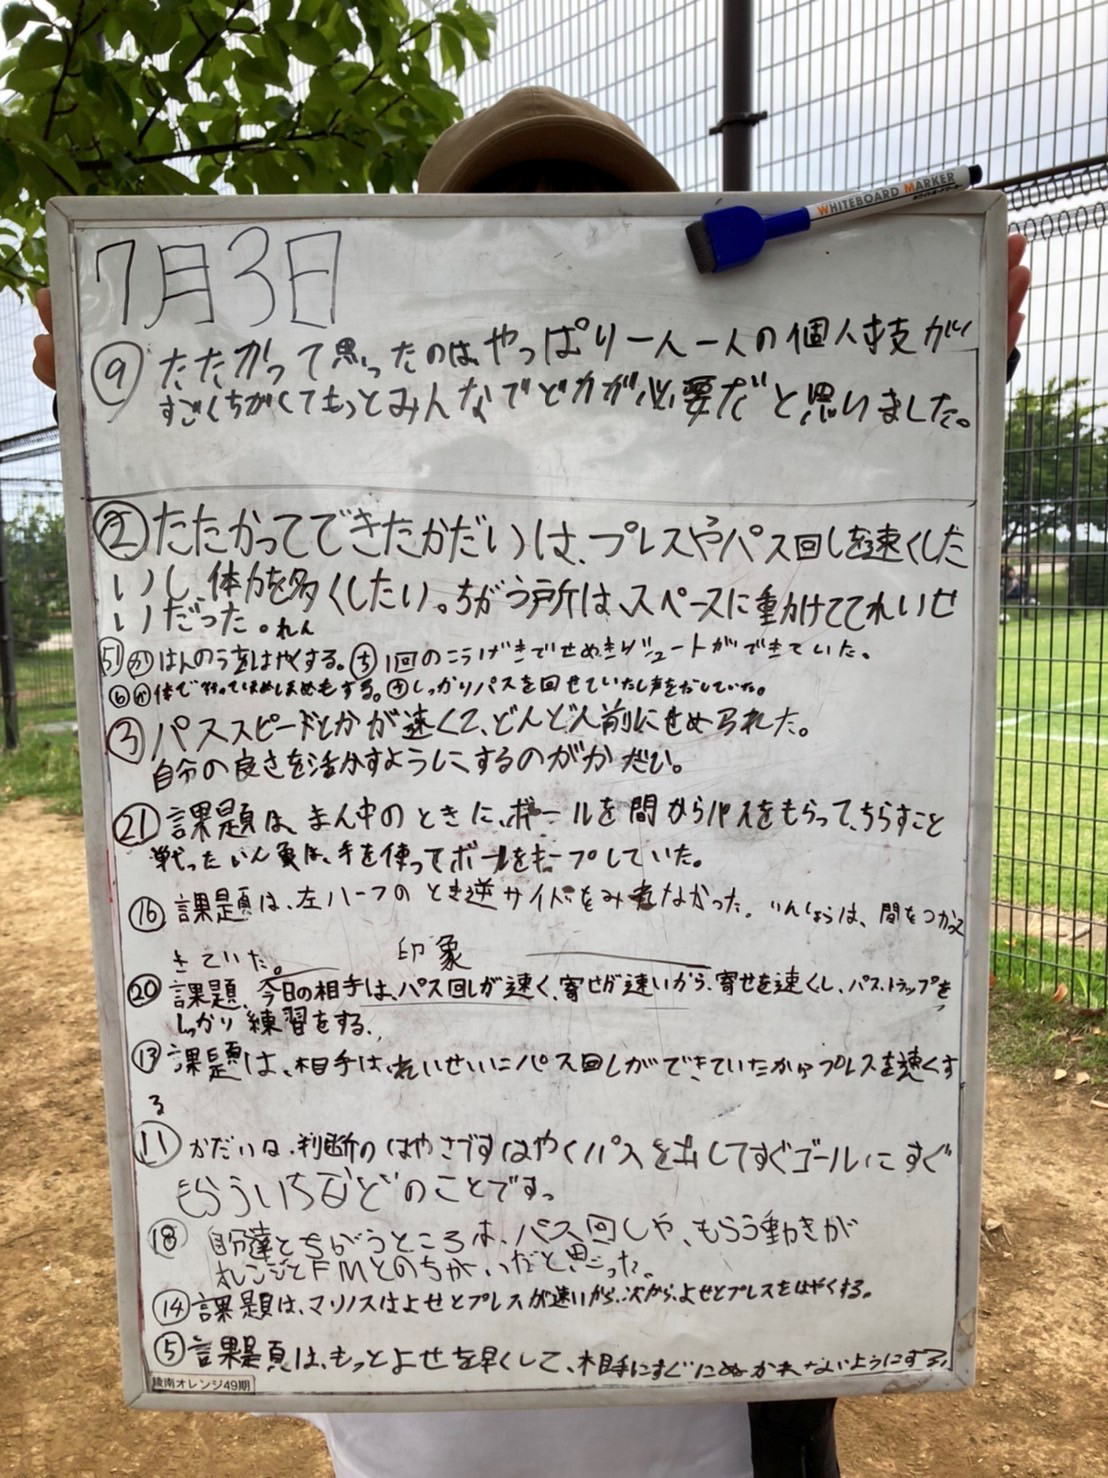 WHITEBOARD MARKER
7月3日
⑨ たたかって思ったのはやっぱり一人一人の個人技が
すごくちがくてもっとみんなでど力が必要だと思いました。
② たたかってできたかだいは、プレスやパス回しを速くした
いし、体力を多くしたい。ちがう所は、スペースに動けててれいせ
いだった。れん
51 か はんのうをはやくする。ち 1回のこうげきでせめきりシュートができていた。
⑥ か 体で
しっかりパスを回せていたし声をだしていた。
③ パススピードとかが速くて、どんどん前にせめられた。
自分の良さを活かすようにするのがかだい。
㉑ 課題は、まん中のときに、ボールを間からパスをもらって、ちらすこと
戦ったいん象は、手を使ってボールをキープしていた。
⑯ 課題は、左ハーフのとき逆サイドをみれなかった。いんしょうは、間をつかって
きていた。 印象
⑳ 課題、今日の相手は、パス回しが速く、寄せが速いから、寄せを速くし、パス、トラップを
しっかり練習をする、
⑬ 課題は、相手は、れいせいにパス回しができていたからプレスを速くす
る
⑪ かだいは、判断のはやさですはやくパスを出してすぐゴールにすぐ
もらういちなどのことです。
⑱ 自分達とちがうところは、パス回しや、もらう動きが
オレンジとFMとのちがいだと思った。
⑭ 課題は、マリノスはよせとプレスが速いから、次から、よせとプレスをはやくする。
⑤ 課題は、もっとよせを早くして、相手にすぐにぬかれないようにする。
陵南オレンジ49期